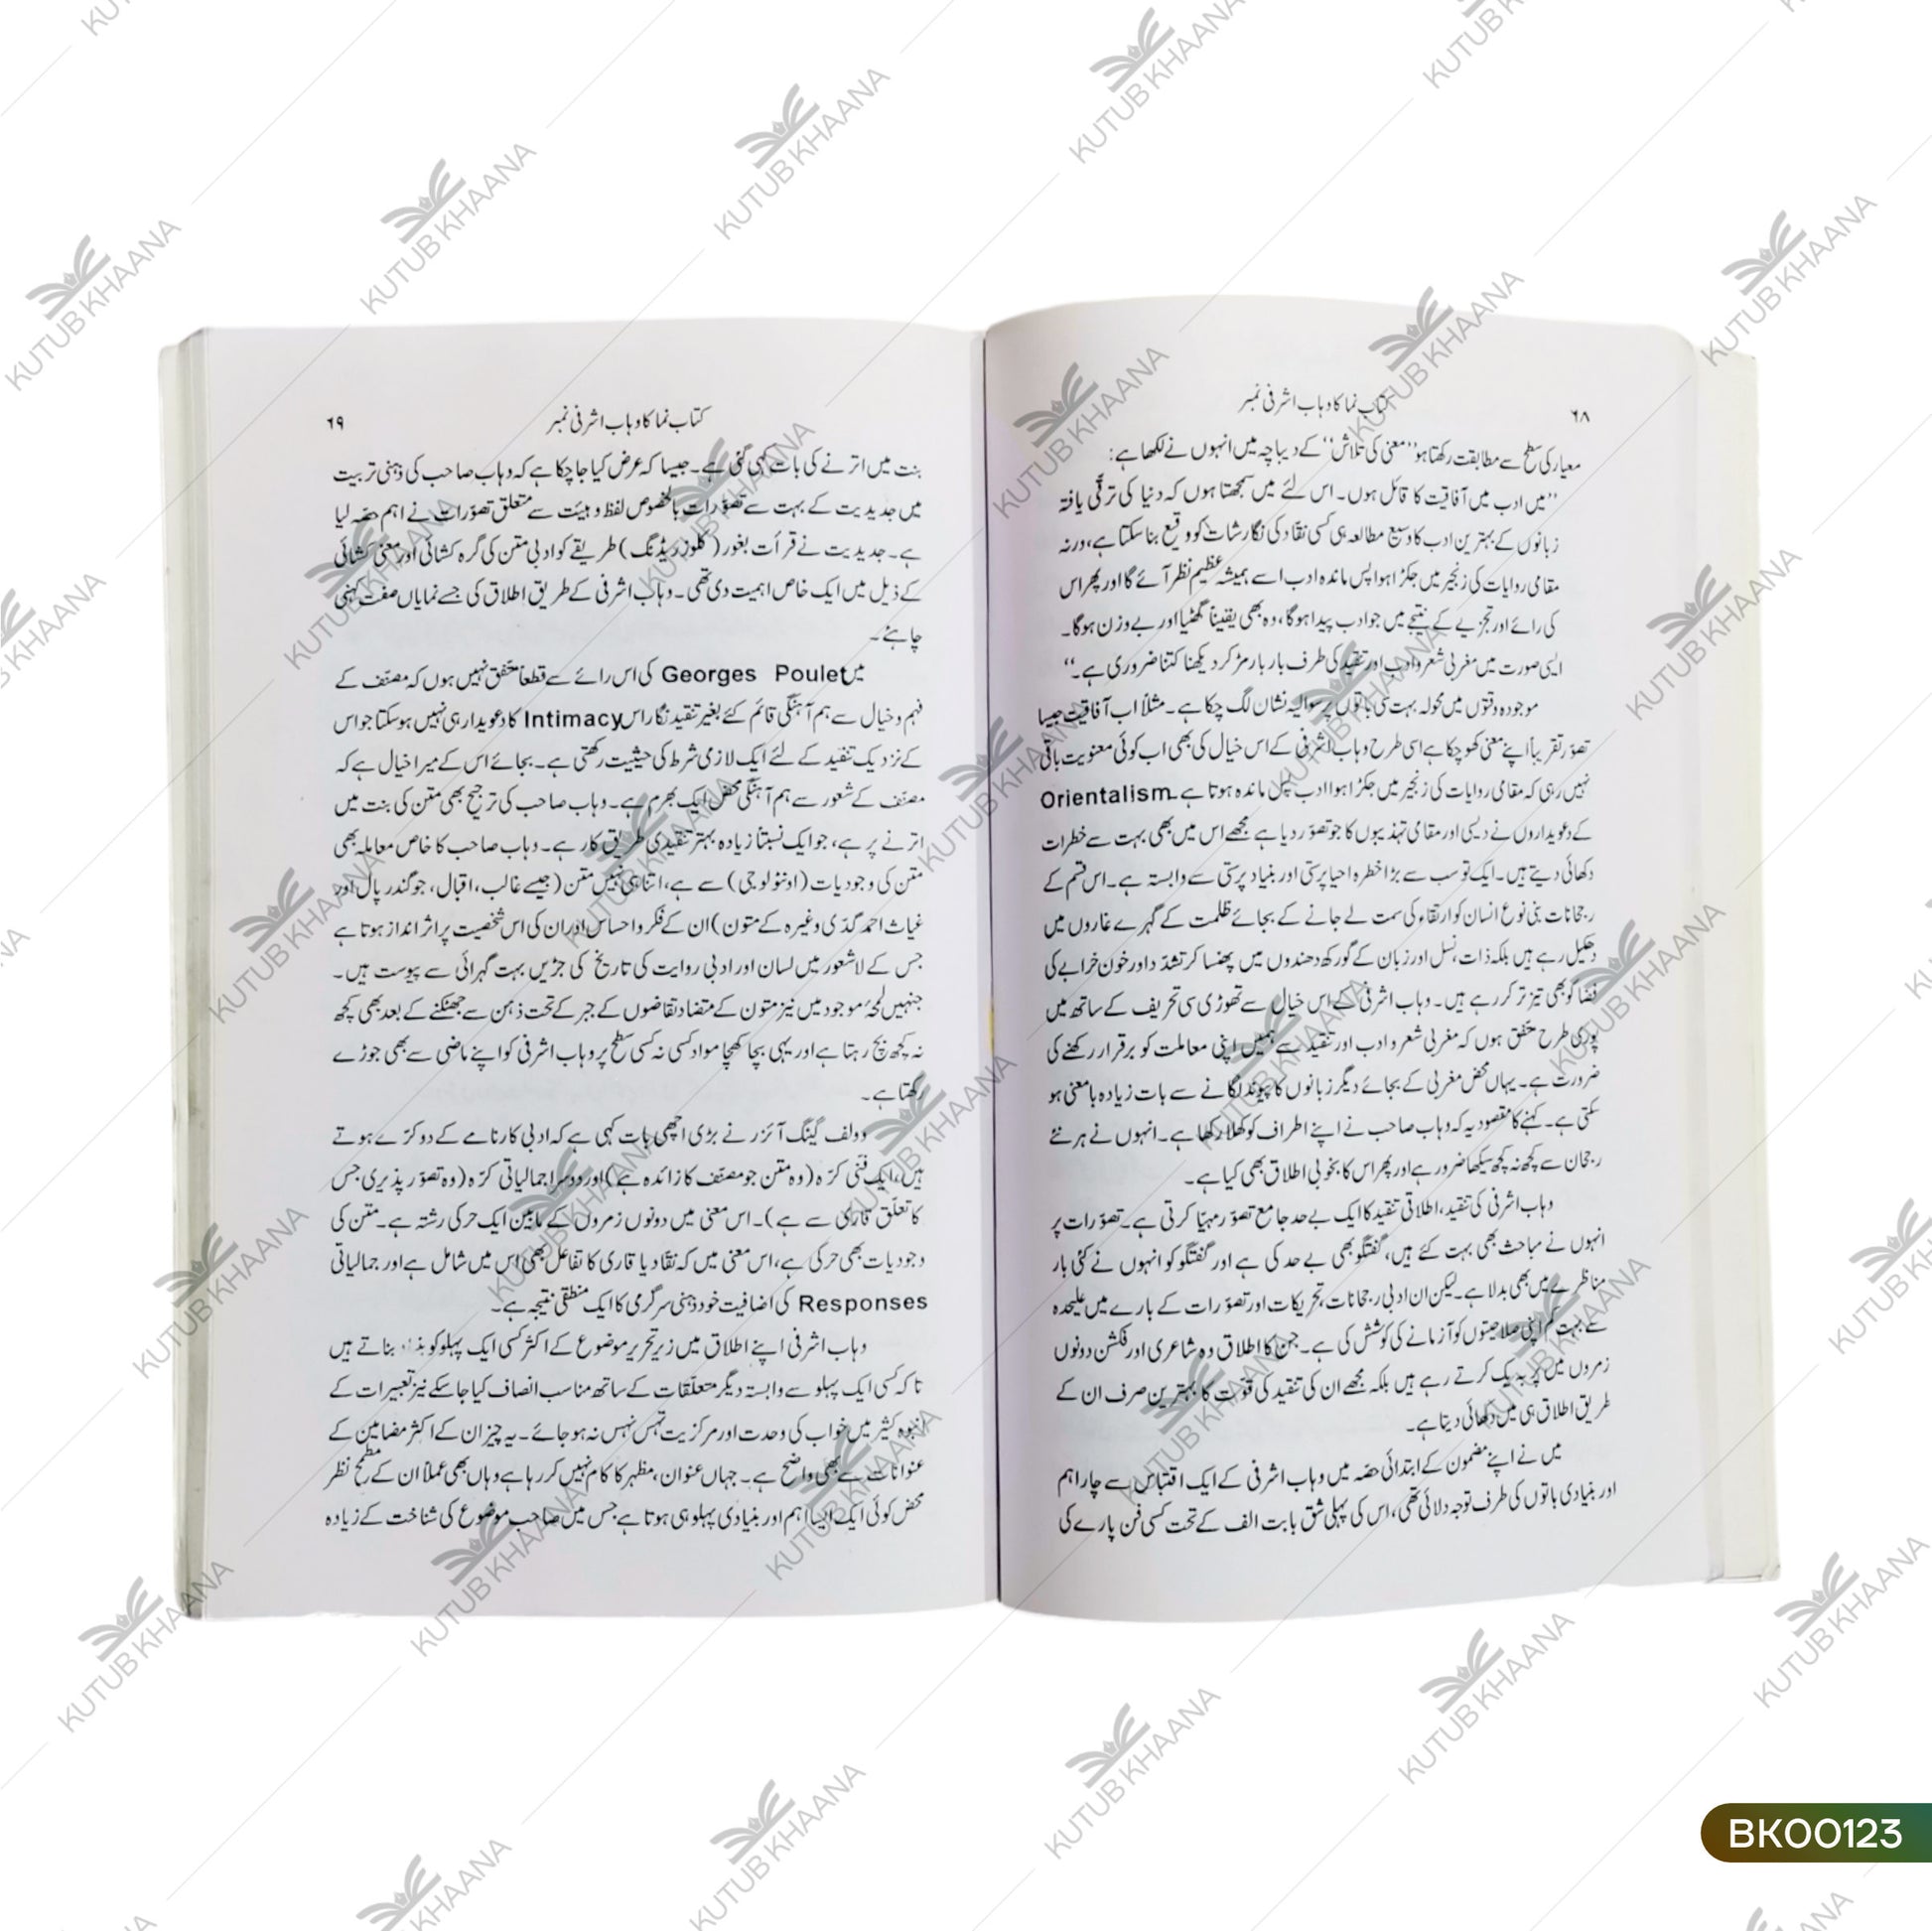 ۶۸
کتاب نما کا وہاب اشرفی نمبر
معیار کی سطح سے مطابقت رکھتا ہو ''معنی کی تلاش'' کے دیباچہ میں انہوں نے لکھا ہے:
''میں ادب میں آفاقیت کا قائل ہوں۔ اس لئے میں سمجھتا ہوں کہ دنیا کی ترقی یافتہ
زبانوں کے بہترین ادب کا وسیع مطالعہ ہی کسی نقاد کی نگارشات کو وقیع بنا سکتا ہے، ورنہ
مقامی روایات کی زنجیر میں جکڑا ہوا پس ماندہ ادب اسے ہمیشہ عظیم نظر آئے گا اور پھر اس
کی رائے اور تجزیے کے نتیجے میں جو ادب پیدا ہوگا، وہ بھی یقیناً گھٹیا اور بے وزن ہوگا۔
ایسی صورت میں مغربی شعر و ادب اور تنقید کی طرف بار بار مڑ کر دیکھنا کتنا ضروری ہے۔''
موجودہ وقتوں میں محولہ بہت سی باتوں پر سوالیہ نشان لگ چکا ہے۔ مثلاً اب آفاقیت جیسا
تصوّر تقریباً اپنے معنی کھو چکا ہے اسی طرح وہاب اشرفی کے اس خیال کی بھی اب کوئی معنویت باقی
نہیں رہی کہ مقامی روایات کی زنجیر میں جکڑا ہوا ادب پس ماندہ ہوتا ہے۔ Orientalism
کے دعویداروں نے دیسی اور مقامی تہذیبوں کا جو تصوّر دیا ہے مجھے اس میں بھی بہت سے خطرات
دکھائی دیتے ہیں۔ ایک تو سب سے بڑا خطرہ احیا پرستی اور بنیاد پرستی سے وابستہ ہے۔ اس قسم کے
رجحانات بنی نوع انسان کو ارتقاء کی سمت لے جانے کے بجائے ظلمت کے گہرے غاروں میں
دھکیل رہے ہیں بلکہ ذات، نسل اور زبان کے گورکھ دھندوں میں پھنسا کر تشدّد اور خون خرابے کی
فضا کو بھی تیز تر کر رہے ہیں۔ وہاب اشرفی کے اس خیال سے تھوڑی سی تحریف کے ساتھ میں
پوری طرح متفق ہوں کہ مغربی شعر و ادب اور تنقید سے ہمیں اپنی معاملت کو برقرار رکھنے کی
ضرورت ہے۔ یہاں محض مغربی کے بجائے دیگر زبانوں کا پیوند لگانے سے بات زیادہ بامعنی ہو
سکتی ہے۔ کہنے کا مقصود یہ کہ وہاب صاحب نے اپنے اطراف کو کھلا رکھا ہے۔ انہوں نے ہر نئے
رجحان سے کچھ نہ کچھ سیکھا ضرور ہے اور پھر اس کا بخوبی اطلاق بھی کیا ہے۔
وہاب اشرفی کی تنقید، اطلاقی تنقید کا ایک بے حد جامع تصوّر مہیّا کرتی ہے۔ تصوّرات پر
انہوں نے مباحث بھی بہت کئے ہیں، گفتگو بھی بے حد کی ہے اور گفتگو کو انہوں نے کئی بار
مناظرے میں بھی بدلا ہے۔ لیکن ان ادبی رجحانات، تحریکات اور تصوّرات کے بارے میں علیحدہ
سے بہت کم اپنی صلاحیتوں کو آزمانے کی کوشش کی ہے۔ جن کا اطلاق وہ شاعری اور فکشن دونوں
زمروں میں پر بہ یک کرتے رہے ہیں بلکہ مجھے ان کی تنقید کی قوّت کا بہترین صرف ان کے
طریق اطلاق ہی میں دکھائی دیتا ہے۔
میں نے اپنے مضمون کے ابتدائی حصّہ میں وہاب اشرفی کے ایک اقتباس سے چار اہم
اور بنیادی باتوں کی طرف توجہ دلائی تھی، اس کی پہلی شق بابت الف کے تحت کسی فن پارے کی
۶۹
کتاب نما کا وہاب اشرفی نمبر
بنت میں اترنے کی بات کہی گئی ہے۔ جیسا کہ عرض کیا جا چکا ہے کہ وہاب صاحب کی ذہنی تربیت
میں جدیدیت کے بہت سے تصوّرات بالخصوص لفظ و ہیئت سے متعلق تصوّرات نے اہم حصّہ لیا
ہے۔ جدیدیت نے قرأت بغور (کلوز ریڈنگ) طریقے کو ادبی متن کی گرہ کشائی اور معنی کشائی
کے ذیل میں ایک خاص اہمیت دی تھی۔ وہاب اشرفی کے طریق اطلاق کی جسے نمایاں صفت کہنی
چاہئے۔
میں Georges Poulet کی اس رائے سے قطعاً متفق نہیں ہوں کہ مصنّف کے
فہم و خیال سے ہم آہنگی قائم کئے بغیر تنقید نگار اس Intimacy کا دعویدار ہی نہیں ہو سکتا جو اس
کے نزدیک تنقید کے لئے ایک لازمی شرط کی حیثیت رکھتی ہے۔ بجائے اس کے میرا خیال ہے کہ
مصنّف کے شعور سے ہم آہنگی محض ایک بھرم ہے۔ وہاب صاحب کی ترجیح بھی متن کی بنت میں
اترنے پر ہے، جو ایک نسبتاً زیادہ بہتر تنقیدی طریق کار ہے۔ وہاب صاحب کا خاص معاملہ بھی
متن کی وجودیات (اونٹولوجی) سے ہے، اتنا ہی نہیں متن (جیسے غالب، اقبال، جوگندر پال اور
غیاث احمد گدّی وغیرہ کے متون) ان کے فکر و احساس اور ان کی اس شخصیت پر اثر انداز ہوتا ہے
جس کے لاشعور میں لسان اور ادبی روایت کی تاریخ کی جڑیں بہت گہرائی سے پیوست ہیں۔
جنہیں لمحۂ موجود میں نیز متون کے متضاد تقاضوں کے جبر کے تحت ذہن سے جھٹکنے کے بعد بھی کچھ
نہ کچھ بچ رہتا ہے اور یہی بچا کھچا مواد کسی نہ کسی سطح پر وہاب اشرفی کو اپنے ماضی سے بھی جوڑے
رکھتا ہے۔
وولف گینگ آئزر نے بڑی اچھی بات کہی ہے کہ ادبی کارنامے کے دو کرّے ہوتے
ہیں، ایک فنّی کرّہ (وہ متن جو مصنّف کا زائدہ ہے) اور دوسرا جمالیاتی کرّہ (وہ تصوّر پذیری جس
کا تعلق قاری سے ہے)۔ اس معنی میں دونوں زمروں کے مابین ایک حرکی رشتہ ہے۔ متن کی
وجودیات بھی حرکی ہے، اس معنی میں کہ نقّاد یا قاری کا تفاعل بھی اس میں شامل ہے اور جمالیاتی
Responses کی اضافیت خود ذہنی سرگرمی کا ایک منطقی نتیجہ ہے۔
وہاب اشرفی اپنے اطلاق میں زیر تحریر موضوع کے اکثر کسی ایک پہلو کو بنیاد بناتے ہیں
تاکہ کسی ایک پہلو سے وابستہ دیگر متعلّقات کے ساتھ مناسب انصاف کیا جا سکے نیز تعبیرات کے
انبوہ کثیر میں خواب کی وحدت اور مرکزیت تہس نہس نہ ہو جائے۔ یہ چیز ان کے اکثر مضامین کے
عنوانات سے بھی واضح ہے۔ جہاں عنوان، مظہر کا کام نہیں کر رہا ہے وہاں بھی عملاً ان کے مطمح نظر
محض کوئی ایک ایسا اہم اور بنیادی پہلو ہی ہوتا ہے جس میں صاحب موضوع کی شناخت کے زیادہ
KUTUB KHAANA
BK00123